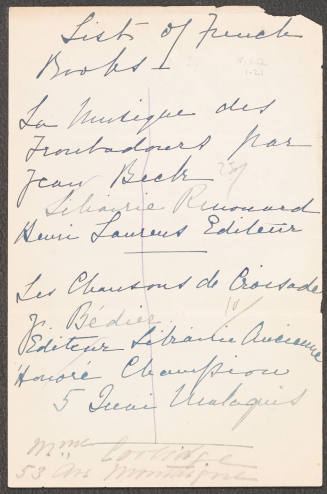 List of French
Books –
La Musique des
Troubadours par
Jean Beck
Librairie Renouard
Henri Laurens Editeur
Les Chansons de Croisade
J. Bédier
Editeur Librairie Ancienne
Honoré Champion
5 Quai Malaquis
Mme Coolidge
53 Ave Montaigne